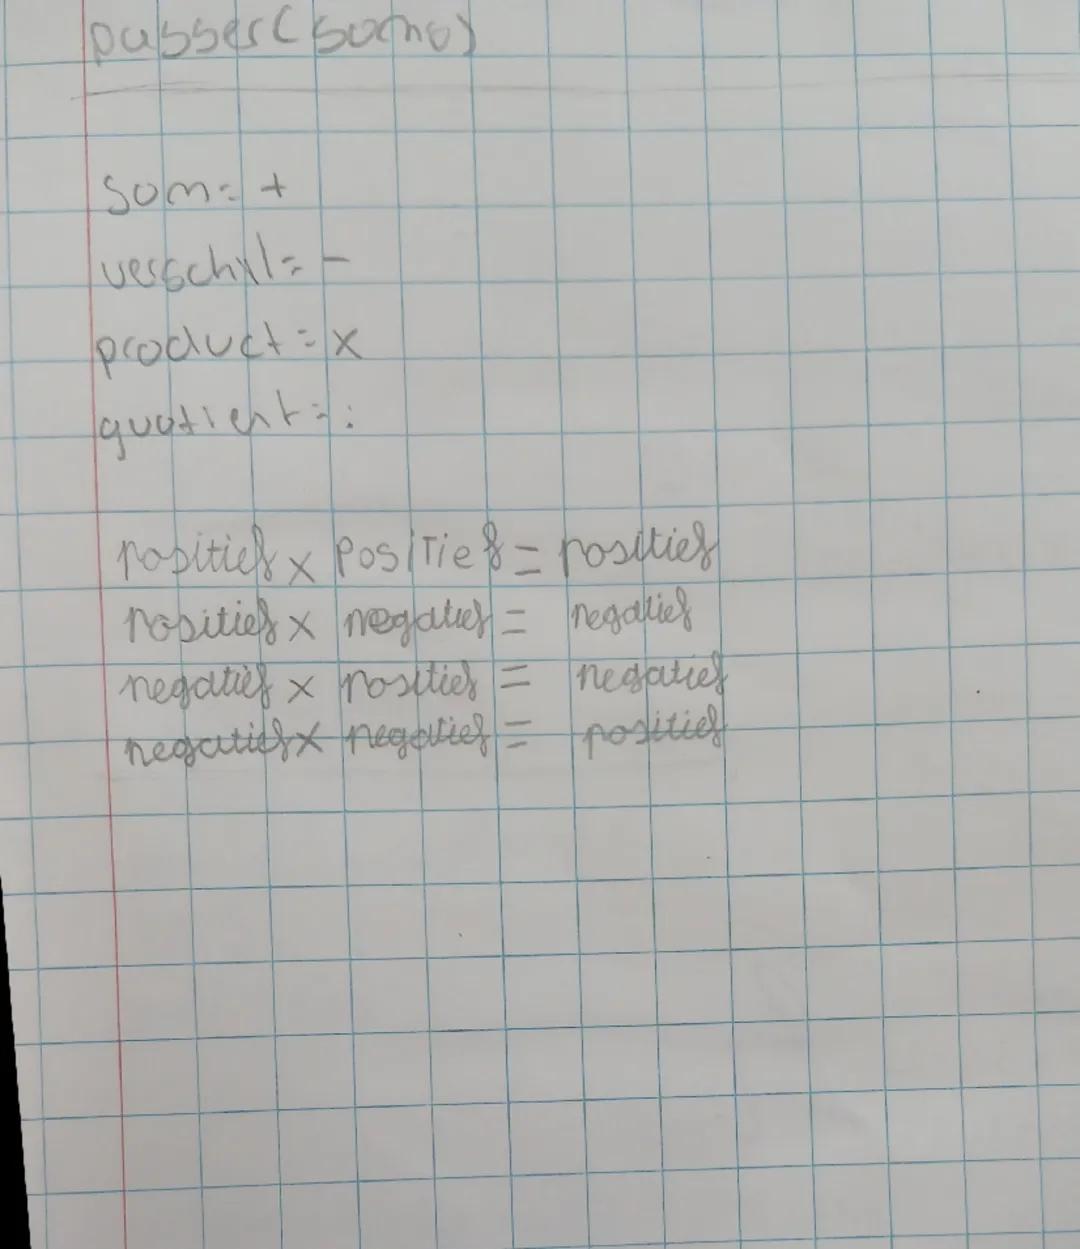 passer (soms)
som = +
verschil = -
product = x
quotient = :
positief x positief = positief
positief x negatief = negatief
negatief x positief = negatief
negatief x negatief = positief